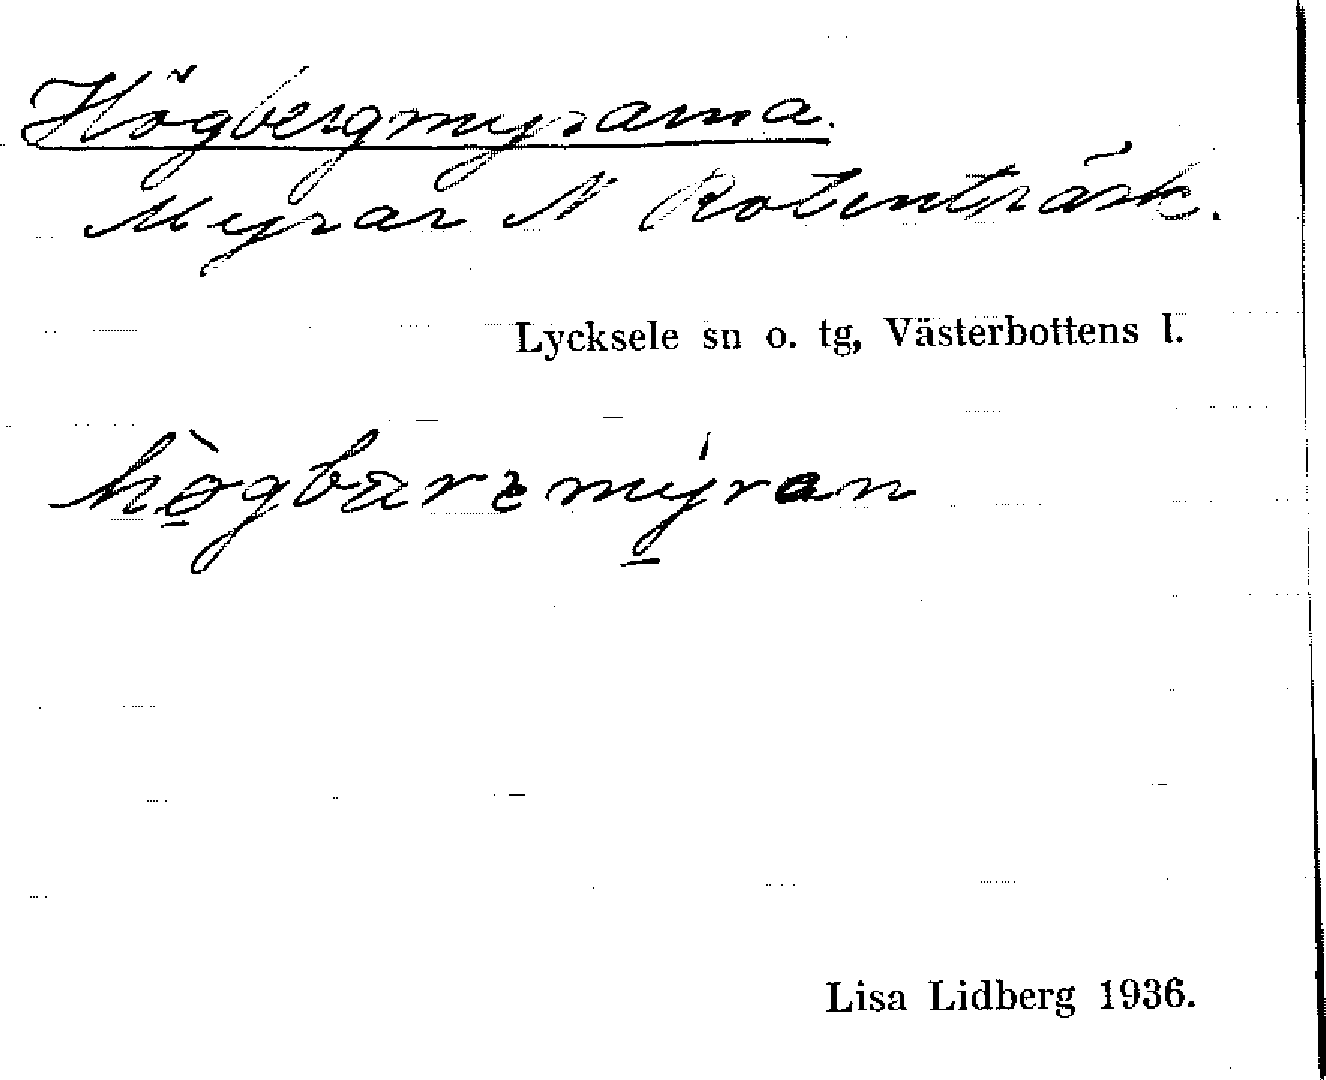 Högbergmyrarna.
Myrar N Rotenträsk.
Lycksele sn o. tg, Västerbottens l.
Lisa Lidberg 1936.